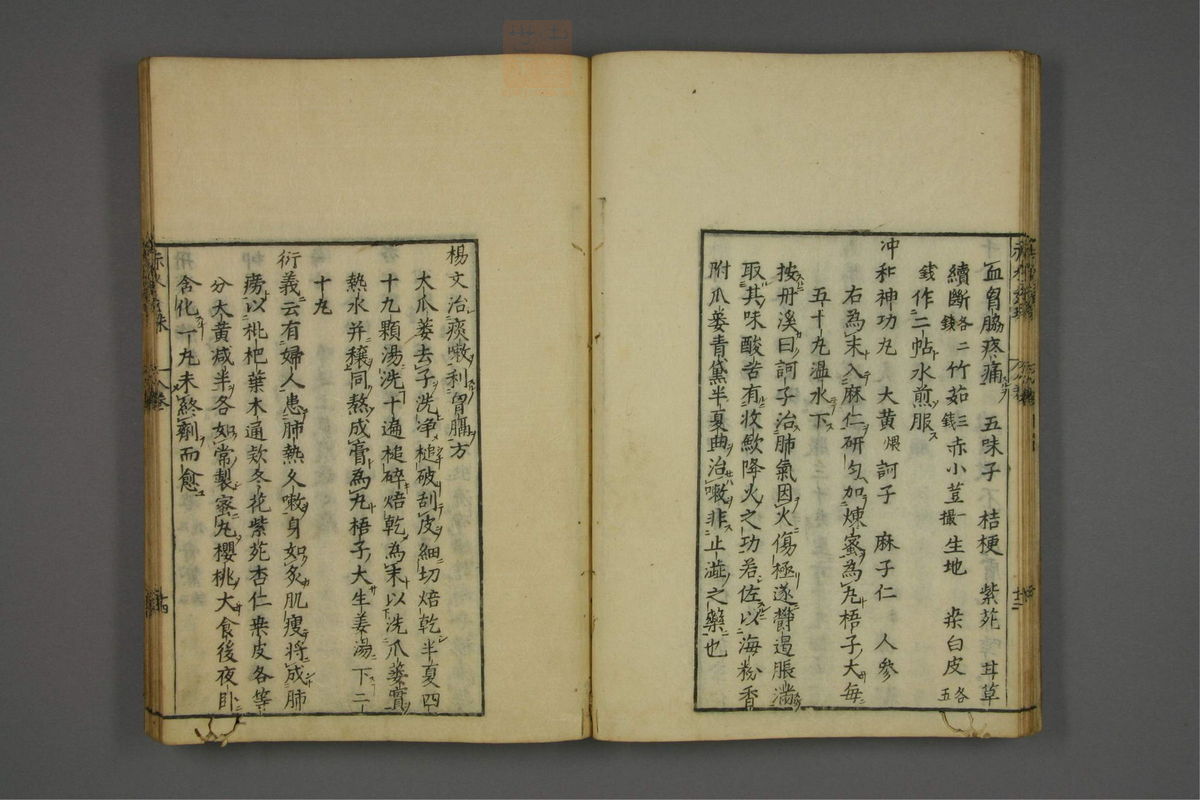 血胷脇疼痛　五味子　桔梗　紫菀　甘草
續斷各二錢竹茹三錢赤小荳一撮生地　桒白皮各五
錢作二帖水煎服
冲和神功丸　大黄煨訶子　麻子仁　人參
右為末入麻仁研匀加煉蜜為丸梧子大每
五十丸温水下
按丹溪曰訶子治肺氣因火傷極遂欝遏脹滿
取其味酸苦有收歛降火之功若佐以海粉香
附瓜蒌青黛半夏曲治嗽非止澁之藥也
楊文治痰嗽利胷膈方
大瓜蒌去子洗净槌破刮皮細切焙乾半夏四
十九顆湯洗十遍槌碎焙乾為末以洗瓜蒌
熱水并穰同熬成膏為丸梧子大生姜湯下二
十丸
衍義云有婦人患肺熱久嗽身如炙肌瘦將成肺
癆以枇杷葉木通欵冬花紫菀杏仁桒皮各等
分大黄减半各如常製蜜丸櫻桃大食後夜卧
含化一丸未終劑而愈